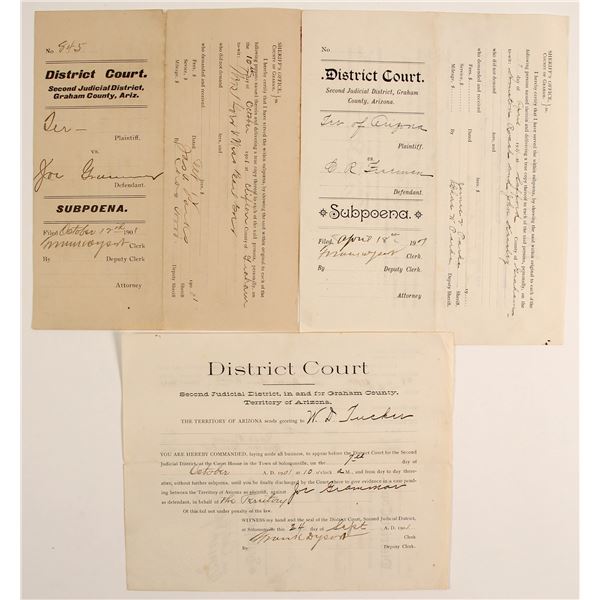 No. 845
District Court.
Second Judicial District,
Graham County, Ariz.
Ter—
Plaintiff.
vs.
Joe Grammar
Defendant.
SUBPOENA.
Filed October 12th 1901
Clerk
By
Deputy Clerk.
Attorney
SHERIFF'S OFFICE,
COUNTY OF GRAHAM
I hereby certify that I have served the within subpoena, by showing the said within original to each of the
following persons named therein and delivering a true copy thereof to each of the said persons, personally, on
the 10th day of October 1901 at Clifton County of Graham
to-wit:
who demanded and received fees, and
who did not demand
Fees, $
Service, $
Mileage, $
Dated
Sheriff
By
Deputy Sheriff
No.
District Court.
Second Judicial District, Graham
County, Arizona.
Ter of Arizona
Plaintiff.
vs.
Freeman
Defendant.
Subpoena.
Filed April 18th 1901
Clerk.
By
Deputy Clerk.
Attorney
SHERIFF'S OFFICE,
COUNTY OF GRAHAM
I hereby certify that I have served the within subpoena, by showing the said within original to each of the
following persons named therein and delivering a true copy thereof to each of the said persons, personally, on
day of 1901 at County of Graham
to-wit:
who demanded and received fees, and
who did not demand
Fees, $
Service, $
Mileage, $
Sheriff
By
Deputy Sheriff
District Court
Second Judicial District, in and for Graham County,
Territory of Arizona.
THE TERRITORY OF ARIZONA sends greeting to W. D. Tucker
YOU ARE HEREBY COMMANDED, laying aside all business, to appear before the District Court for the Second
Judicial District, at the Court House in the Town of Solomonville, on the 7th day of
October A. D. 1901 at 10 o'clock A M., and from day to day there-
after, without further subpoena, until you be finally discharged by the Court here to give evidence in a case pend-
ing between the Territory of Arizona as plaintiff, against Joe Grammar
as defendant, in behalf of the Territory
Of this fail not under penalty of the law.
WITNESS my hand and the seal of the District Court, Second Judicial District,
at Solomonville this 24 day of Sept A. D. 1901
Frank Dysart Clerk.
By
Deputy Clerk.